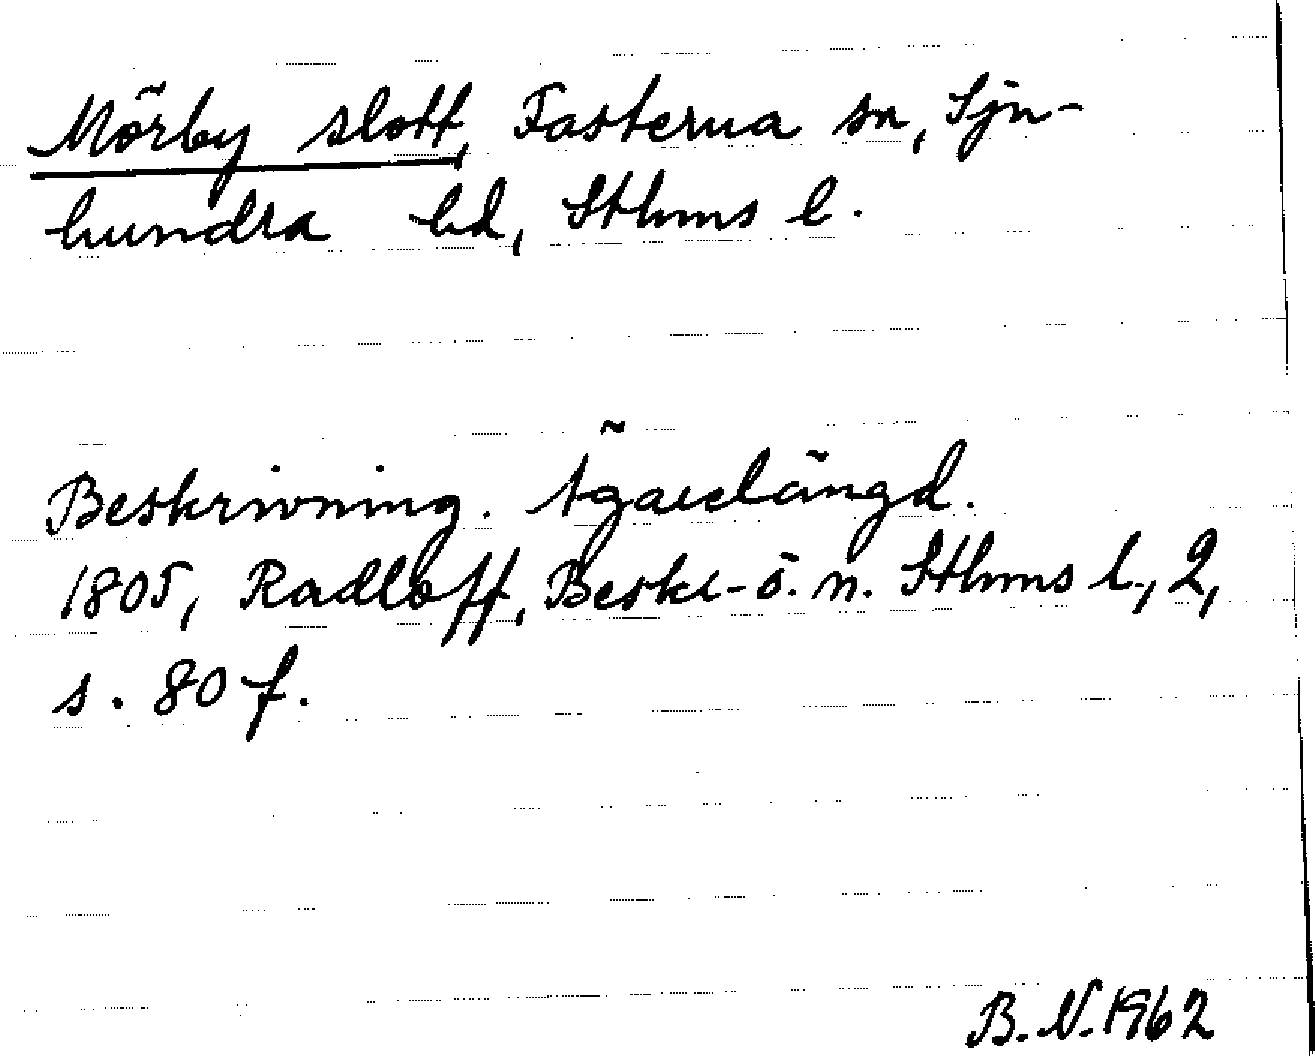 Mörby slott, Fasterna sn, Sju-
hundra hd, Sthms l.
Beskrivning. Ägarelängd.
1805, Radloff, Beskr. ö. n. Sthms l., 2,
s. 80 f.
B. N. 1962